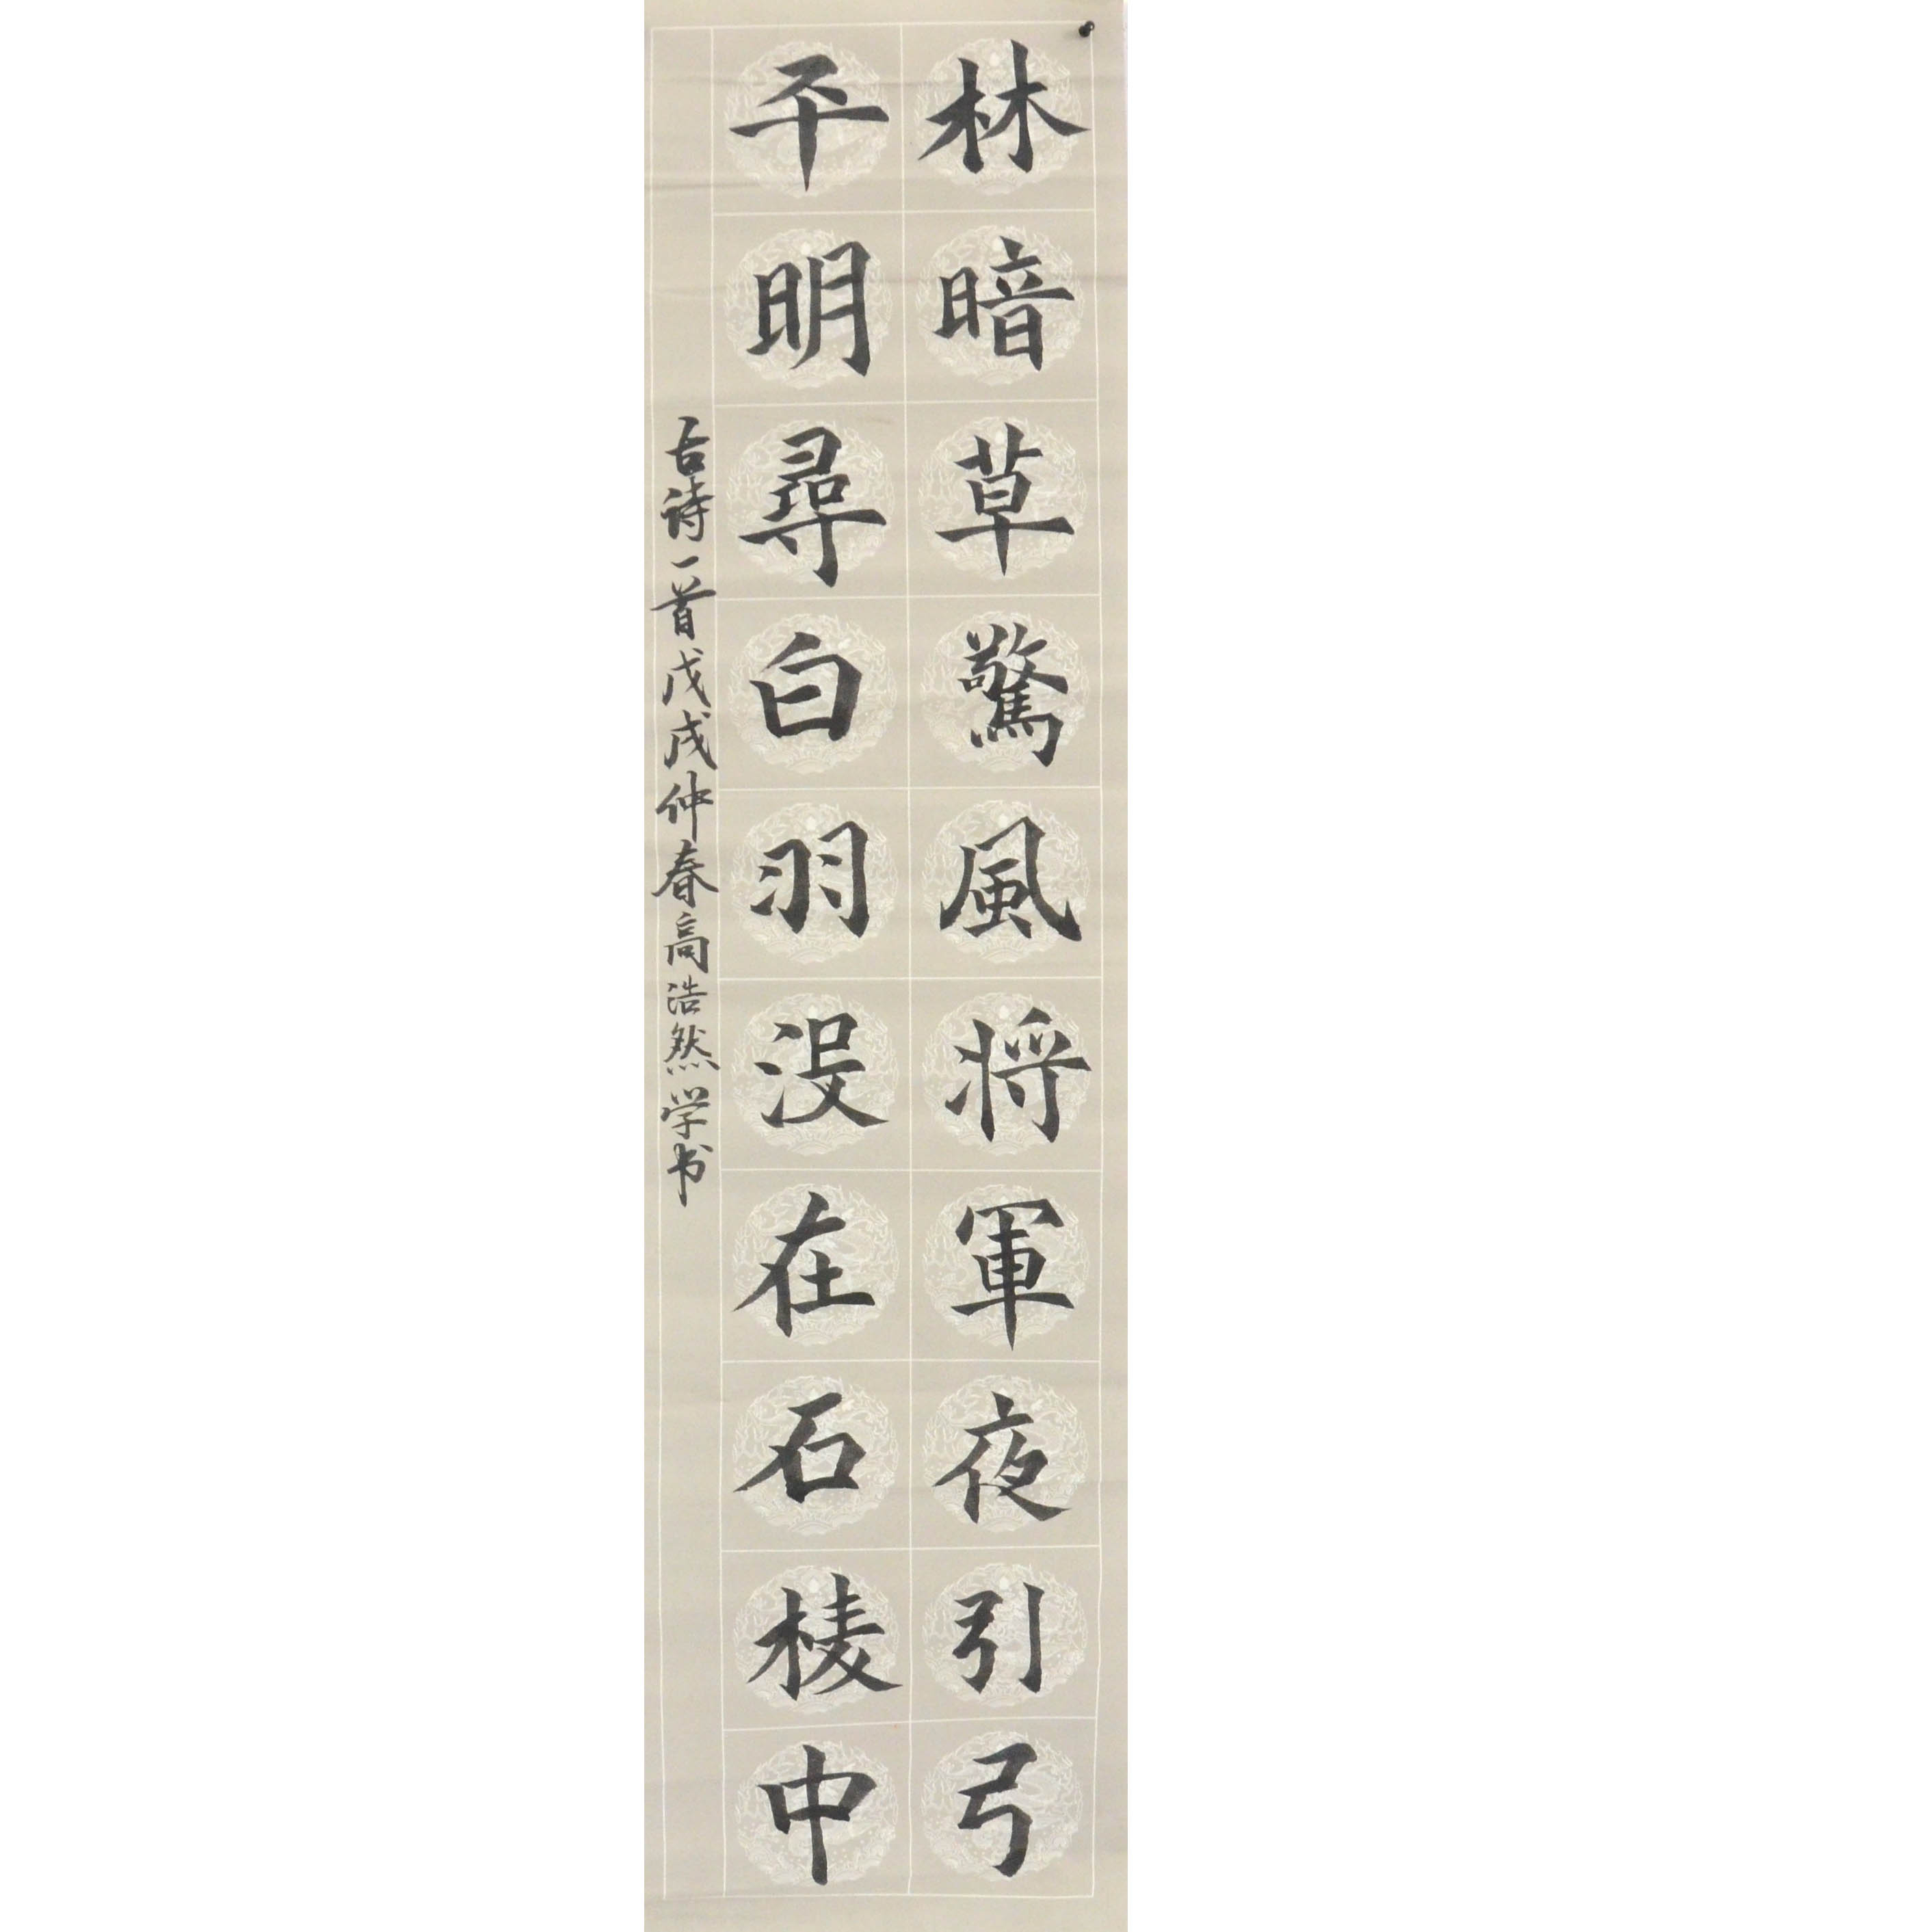 林暗草驚風将軍夜引弓
平明尋白羽没在石棱中
古诗一首戊戌仲春高浩然学书